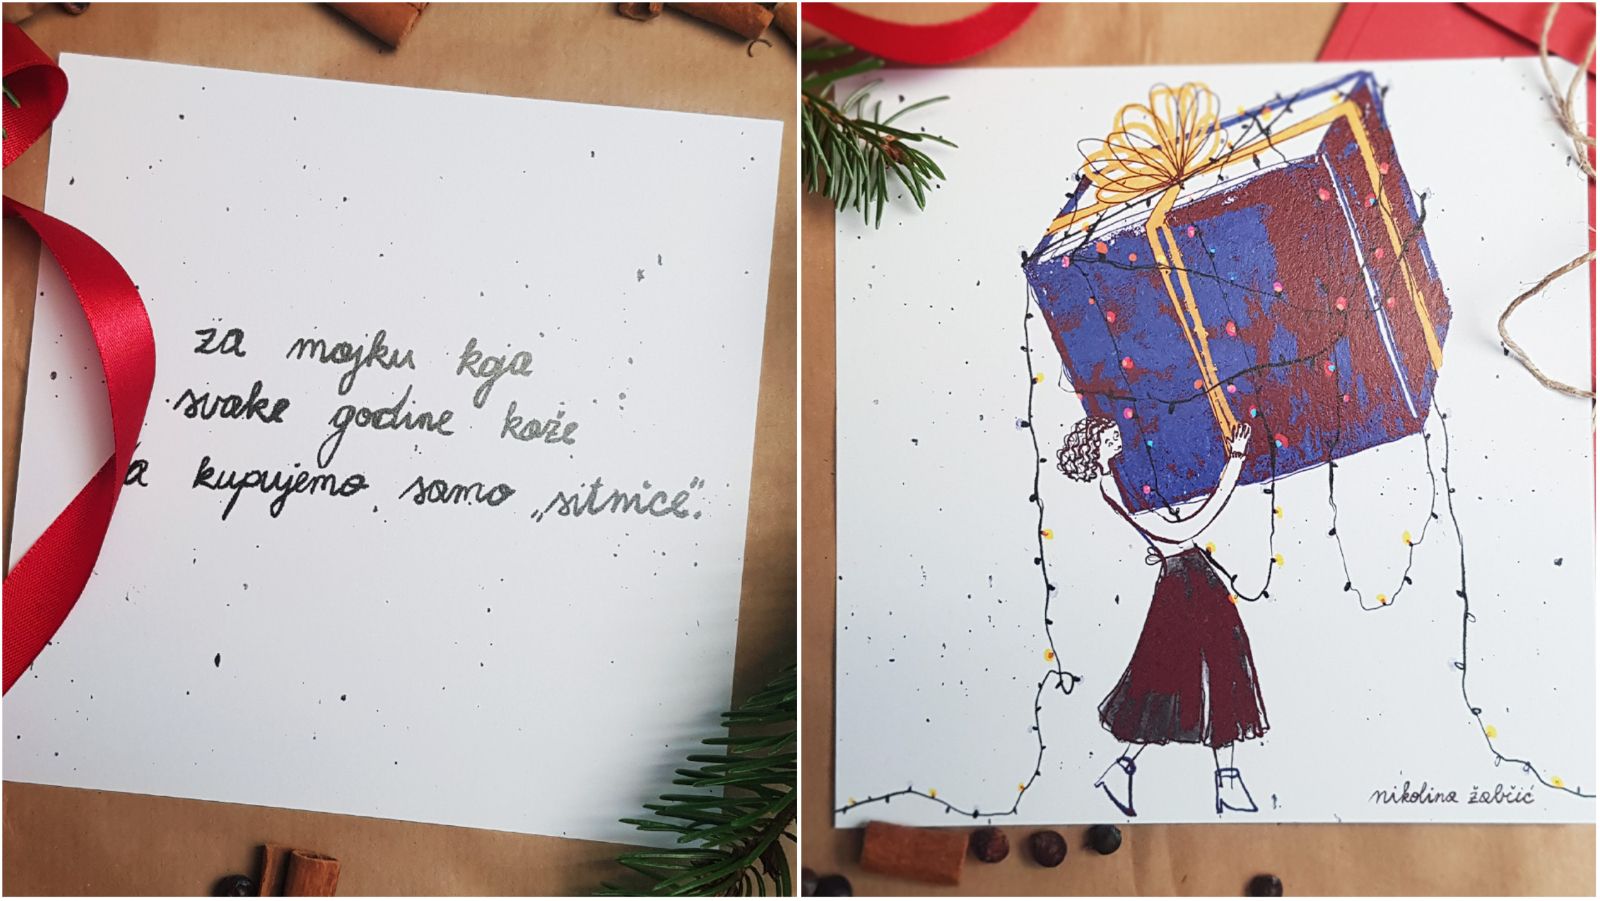 za majku koja
svake godine kaže
a kupujemo samo „sitnice“.
nikolina žabčić